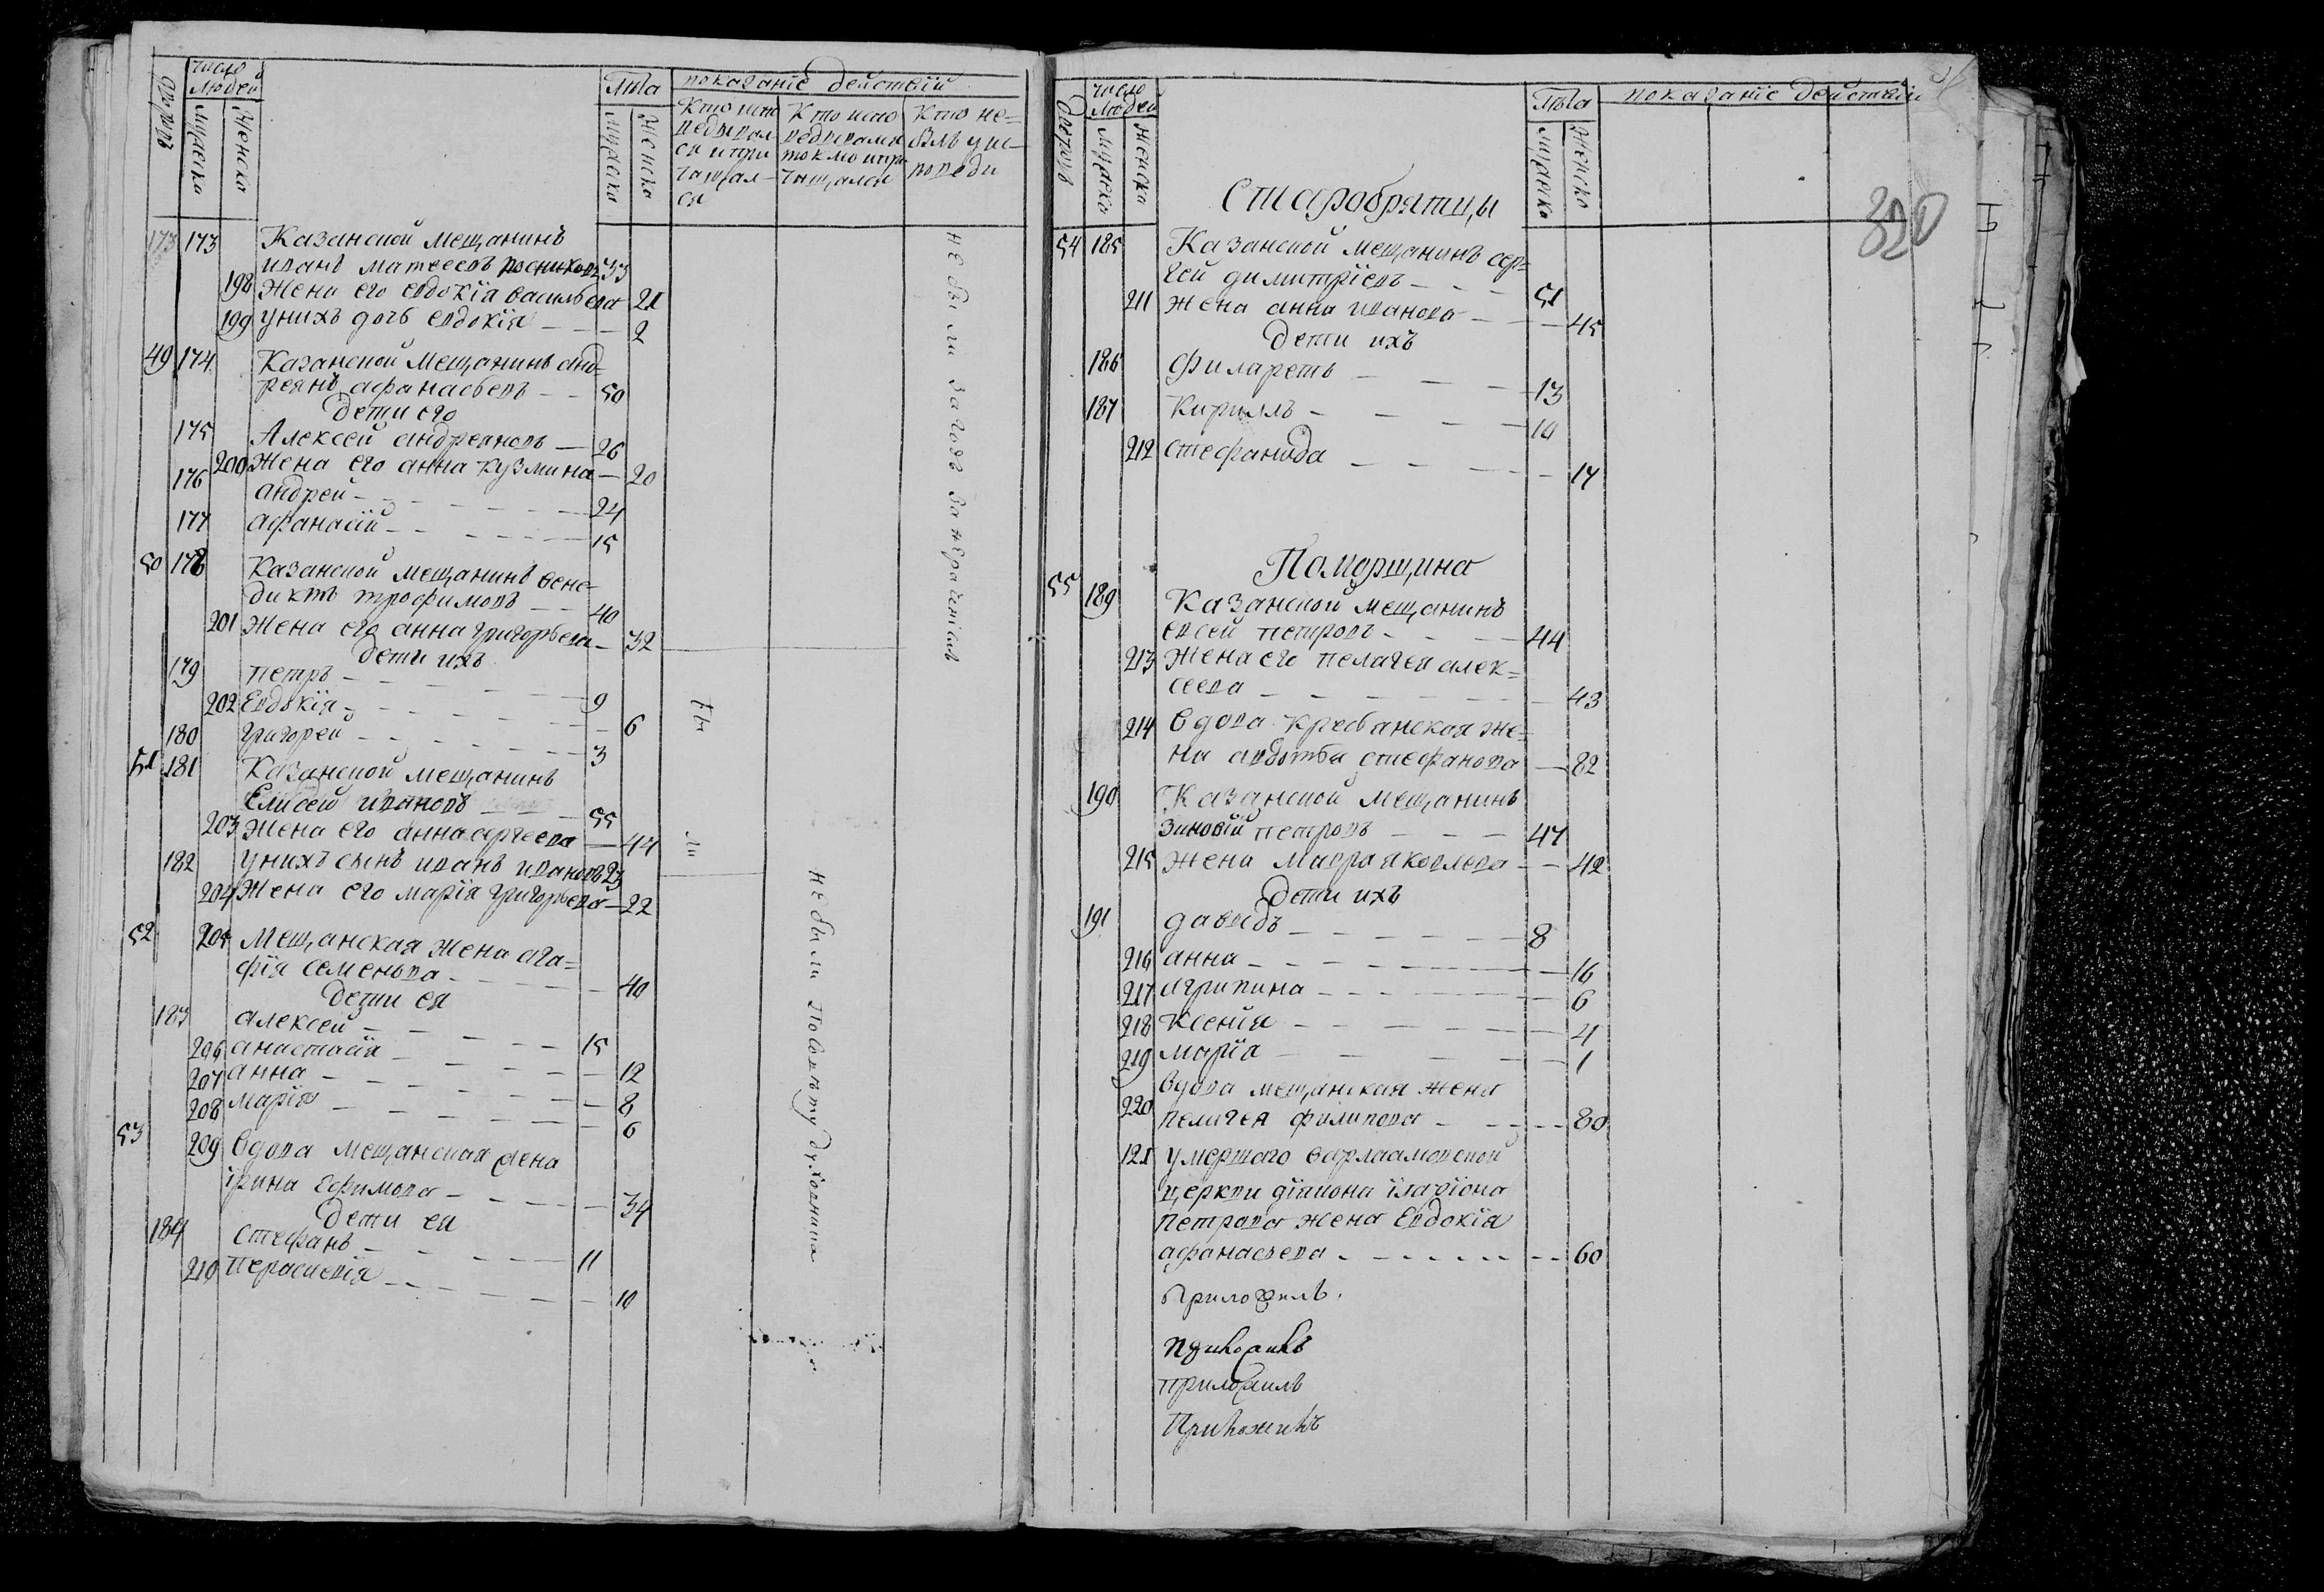 число
людей
лѣта
показанїе действїй
дворовъ
мужеска
женска
мужеска
женска
Кто испо
ведывал
ся и при
чащал-
ся
Кто испо
ведывался
токмо и при
чащался
Кто не=
былъ у ис-
поведи
173 173 Казанской мещанинъ
иванъ матвеевъ 33
198 Жена его евдокїя васильева 21
199 у нихъ дочь евдокїя 2
49 174 Казанской мещанинъ анд-
реянъ афанасьевъ 50
Дети его
175 Алексей андреяновъ 26
200 Жена его анна кузмина 20
176 андрей 24
177 афанасїй 15
50 178 Казанской мещанинъ вене-
диктъ трофимовъ 40
201 Жена его анна григорьева 32
Дети ихъ
179 петръ 9
202 Евдокїя 6
180 григорей 3
51 181 Казанской мещанинъ
Елисей ивановъ 55
203 Жена его анна сргеева 44
182 у нихъ сынъ иванъ ивановъ 23
204 Жена его марїя григорьева 22
52 205 Мещанская жена ага=
фїя семенова 40
Дети ея
183 алексей 15
206 анастасїя 12
207 анна 8
208 марїя 6
53 209 Вдова мещанская жена
їрина Ефимова 34
Дети ея
184 Стефанъ 11
210 Параскевїя 10
не были за
бы
ли
не были по
число
людей
лѣта
показанїе действїй
дворовъ
мужеско
женска
мужеско
женско
320
Старобрятцы
54 185 Казанской мещанинъ сер=
гей димитрїевъ 51
211 жена анна иванова 45
Дети ихъ
186 Филаретъ 13
187 Кириллъ 10
212 стефанида 17
Поморщина
55 189 Казанской мещанинъ
евсей петровъ 44
213 Жена его пелагея алек=
сеева 43
214 вдова кресьанская же=
на авдотья стефанова 82
190 Казанской мещанинъ
зиновїй петровъ 47
215 жена мавра яковлева 42
Дети ихъ
191 давыдъ 8
216 анна 16
217 агрипина 6
218 ксенїя 4
219 марїя 1
вдова мещанская жена
220 пелагея филипова 80
121 умершаго варлаамовской
церкви дїакона їларїона
петрова жена Евдокїя
афанасьева 60